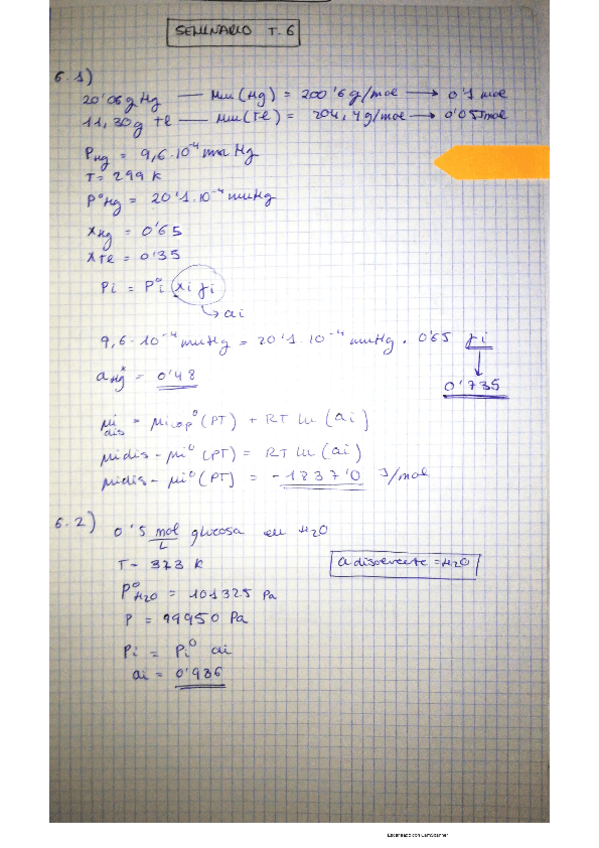 SEMINARIO T.6
6.1)
20'06g Hg — Mm(Hg) = 200'6g/mol → 0'1 mol
11,30g Tl — Mm(Tl) = 204,4g/mol → 0'055mol
P Hg = 9,6·10⁻⁴ mmHg
T = 299 K
P° Hg = 20'1·10⁻⁴ mmHg
x Hg = 0'65
x Tl = 0'35
Pi = P°i xi γi
→ ai
9,6·10⁻⁴ mmHg = 20'1·10⁻⁴ mmHg · 0'65 γi
a Hg = 0'48
0'735
μi dis = μi° (PT) + RT ln (ai)
μidis - μi° (PT) = RT ln (ai)
μidis - μi° (PT) = -1837'0 J/mol
6.2)
0'5 mol/L glucosa en H₂O
T = 373 K
a disolvente = H₂O
P° H₂O = 101325 Pa
P = 99950 Pa
Pi = Pi° ai
ai = 0'986
Escaneado con CamScanner